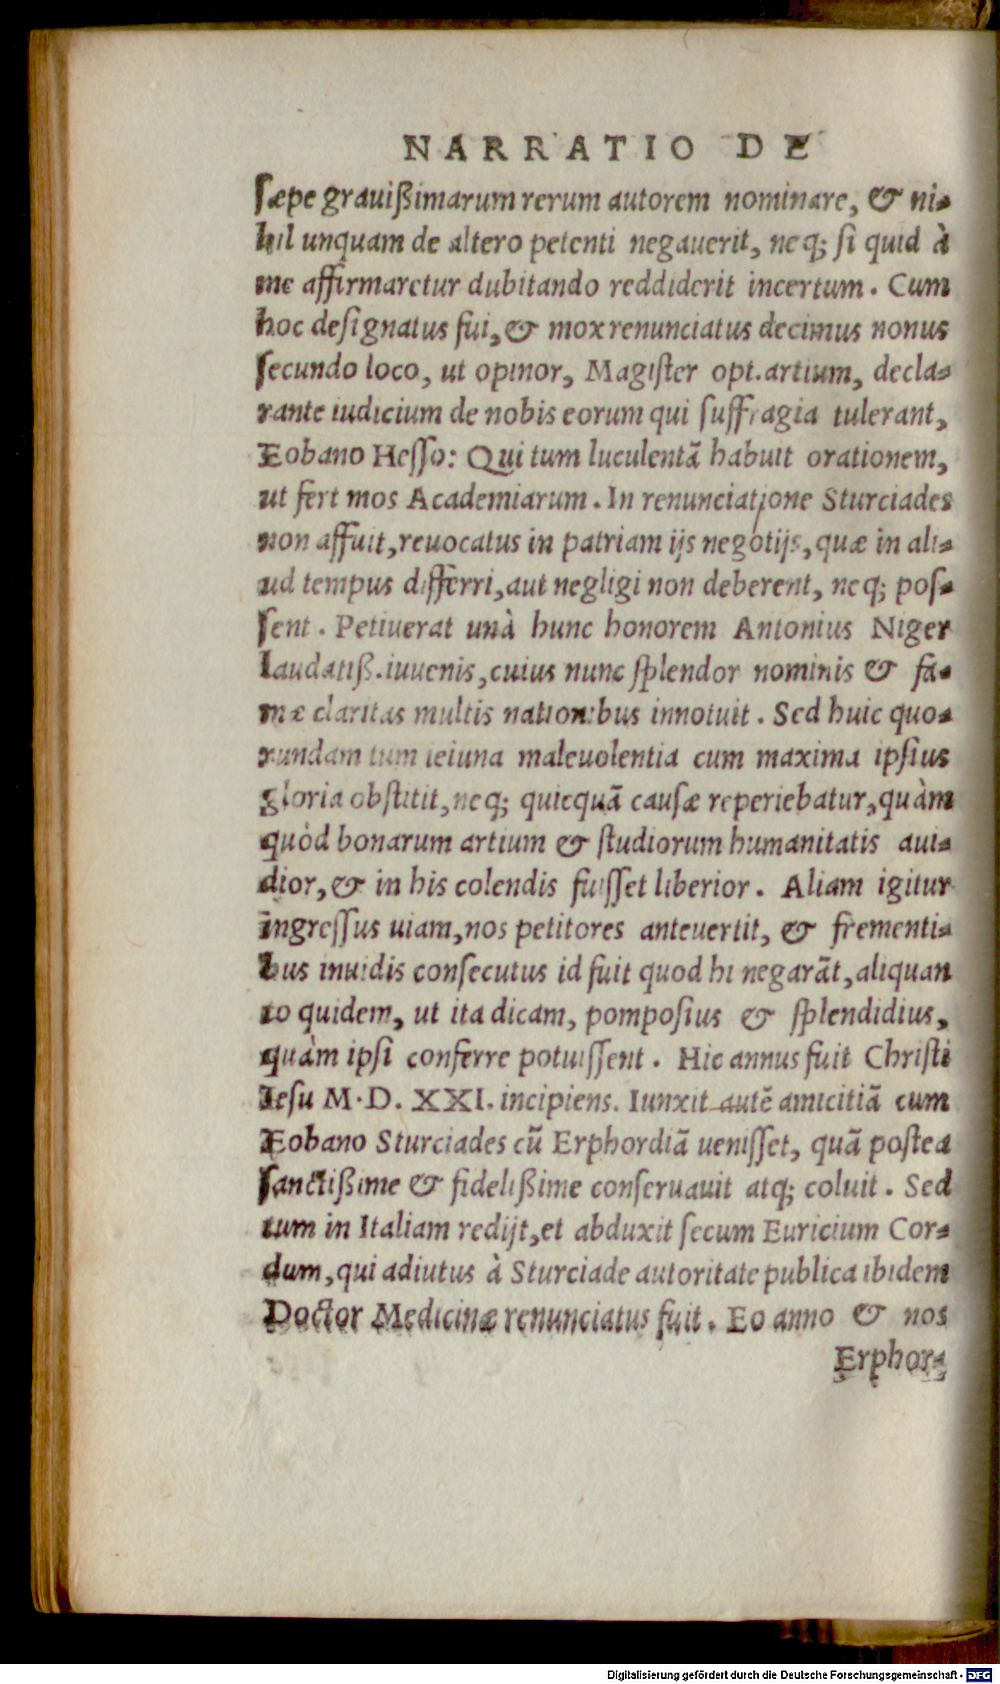 NARRATIO DE
sæpe grauißimarum rerum autorem nominare, & ni-
hil unquam de altero petenti negauerit, neq; si quid à
me affirmaretur dubitando reddiderit incertum. Cum
hoc designatus fui, & mox renunciatus decimus nonus
secundo loco, ut opinor, Magister opt. artium, decla-
rante iudicium de nobis eorum qui suffragia tulerant,
Eobano Hesso: Qui tum luculentã habuit orationem,
ut fert mos Academiarum. In renunciatione Sturciades
non affuit, reuocatus in patriam ijs negotijs, quæ in ali-
ud tempus differri, aut negligi non deberent, neq; pos-
sent. Petiuerat unà hunc honorem Antonius Niger
laudatiß. iuuenis, cuius nunc splendor nominis & fa-
mæ claritas multis nationibus innotuit. Sed huic quo-
rundam tum ieiuna maleuolentia cum maxima ipsius
gloria obstitit, neq; quicquã causæ reperiebatur, quàm
quòd bonarum artium & studiorum humanitatis aui-
dior, & in his colendis fuisset liberior. Aliam igitur
ingressus uiam, nos petitores anteuertit, & frementi-
bus inuidis consecutus id fuit quod hi negarãt, aliquan
to quidem, ut ita dicam, pomposius & splendidius,
quàm ipsi conferre potuissent. Hic annus fuit Christi
Iesu M.D.XXI. incipiens. Iunxit autẽ amicitiã cum
Eobano Sturciades cũ Erphordiã uenisset, quã postea
sanctißime & fidelißime conseruauit atq; coluit. Sed
tum in Italiam redijt, et abduxit secum Euricium Cor-
dum, qui adiutus à Sturciade autoritate publica ibidem
Doctor Medicinæ renunciatus fuit. Eo anno & nos
Erphor-
Digitalisierung gefördert durch die Deutsche Forschungsgemeinschaft - DFG